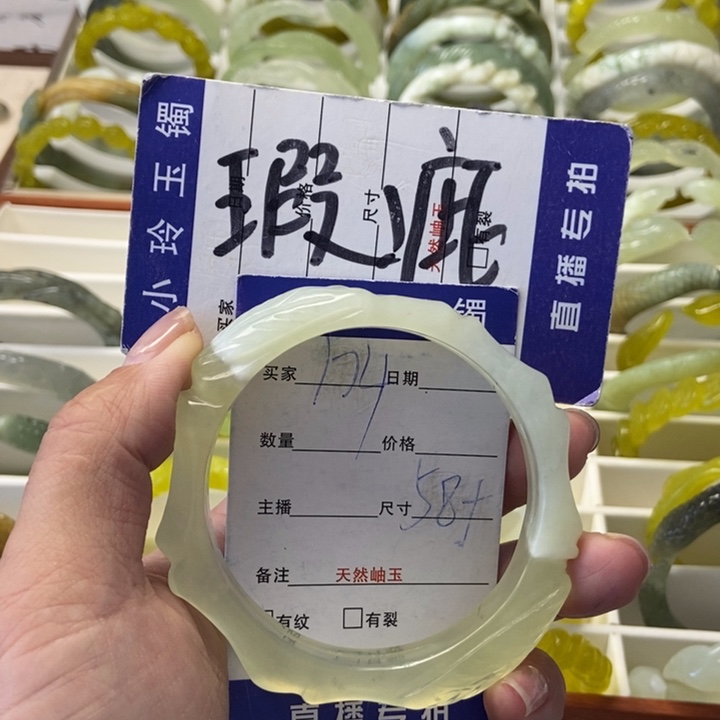 小玲玉镯
瑕疵
日期
价格
尺寸
天然岫玉
有裂
买家
直播专拍
镯
买家 日期
数量 价格
主播 尺寸 58
备注 天然岫玉
有纹 有裂
直播专拍